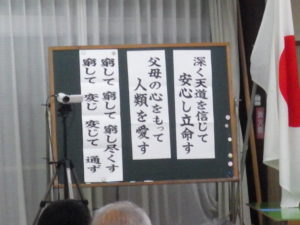 深く天道を信じて
安心し立命す
父母の心をもって
人類を愛す
窮して 窮して 窮し尽くす
窮して 変じ 変じて 通ず